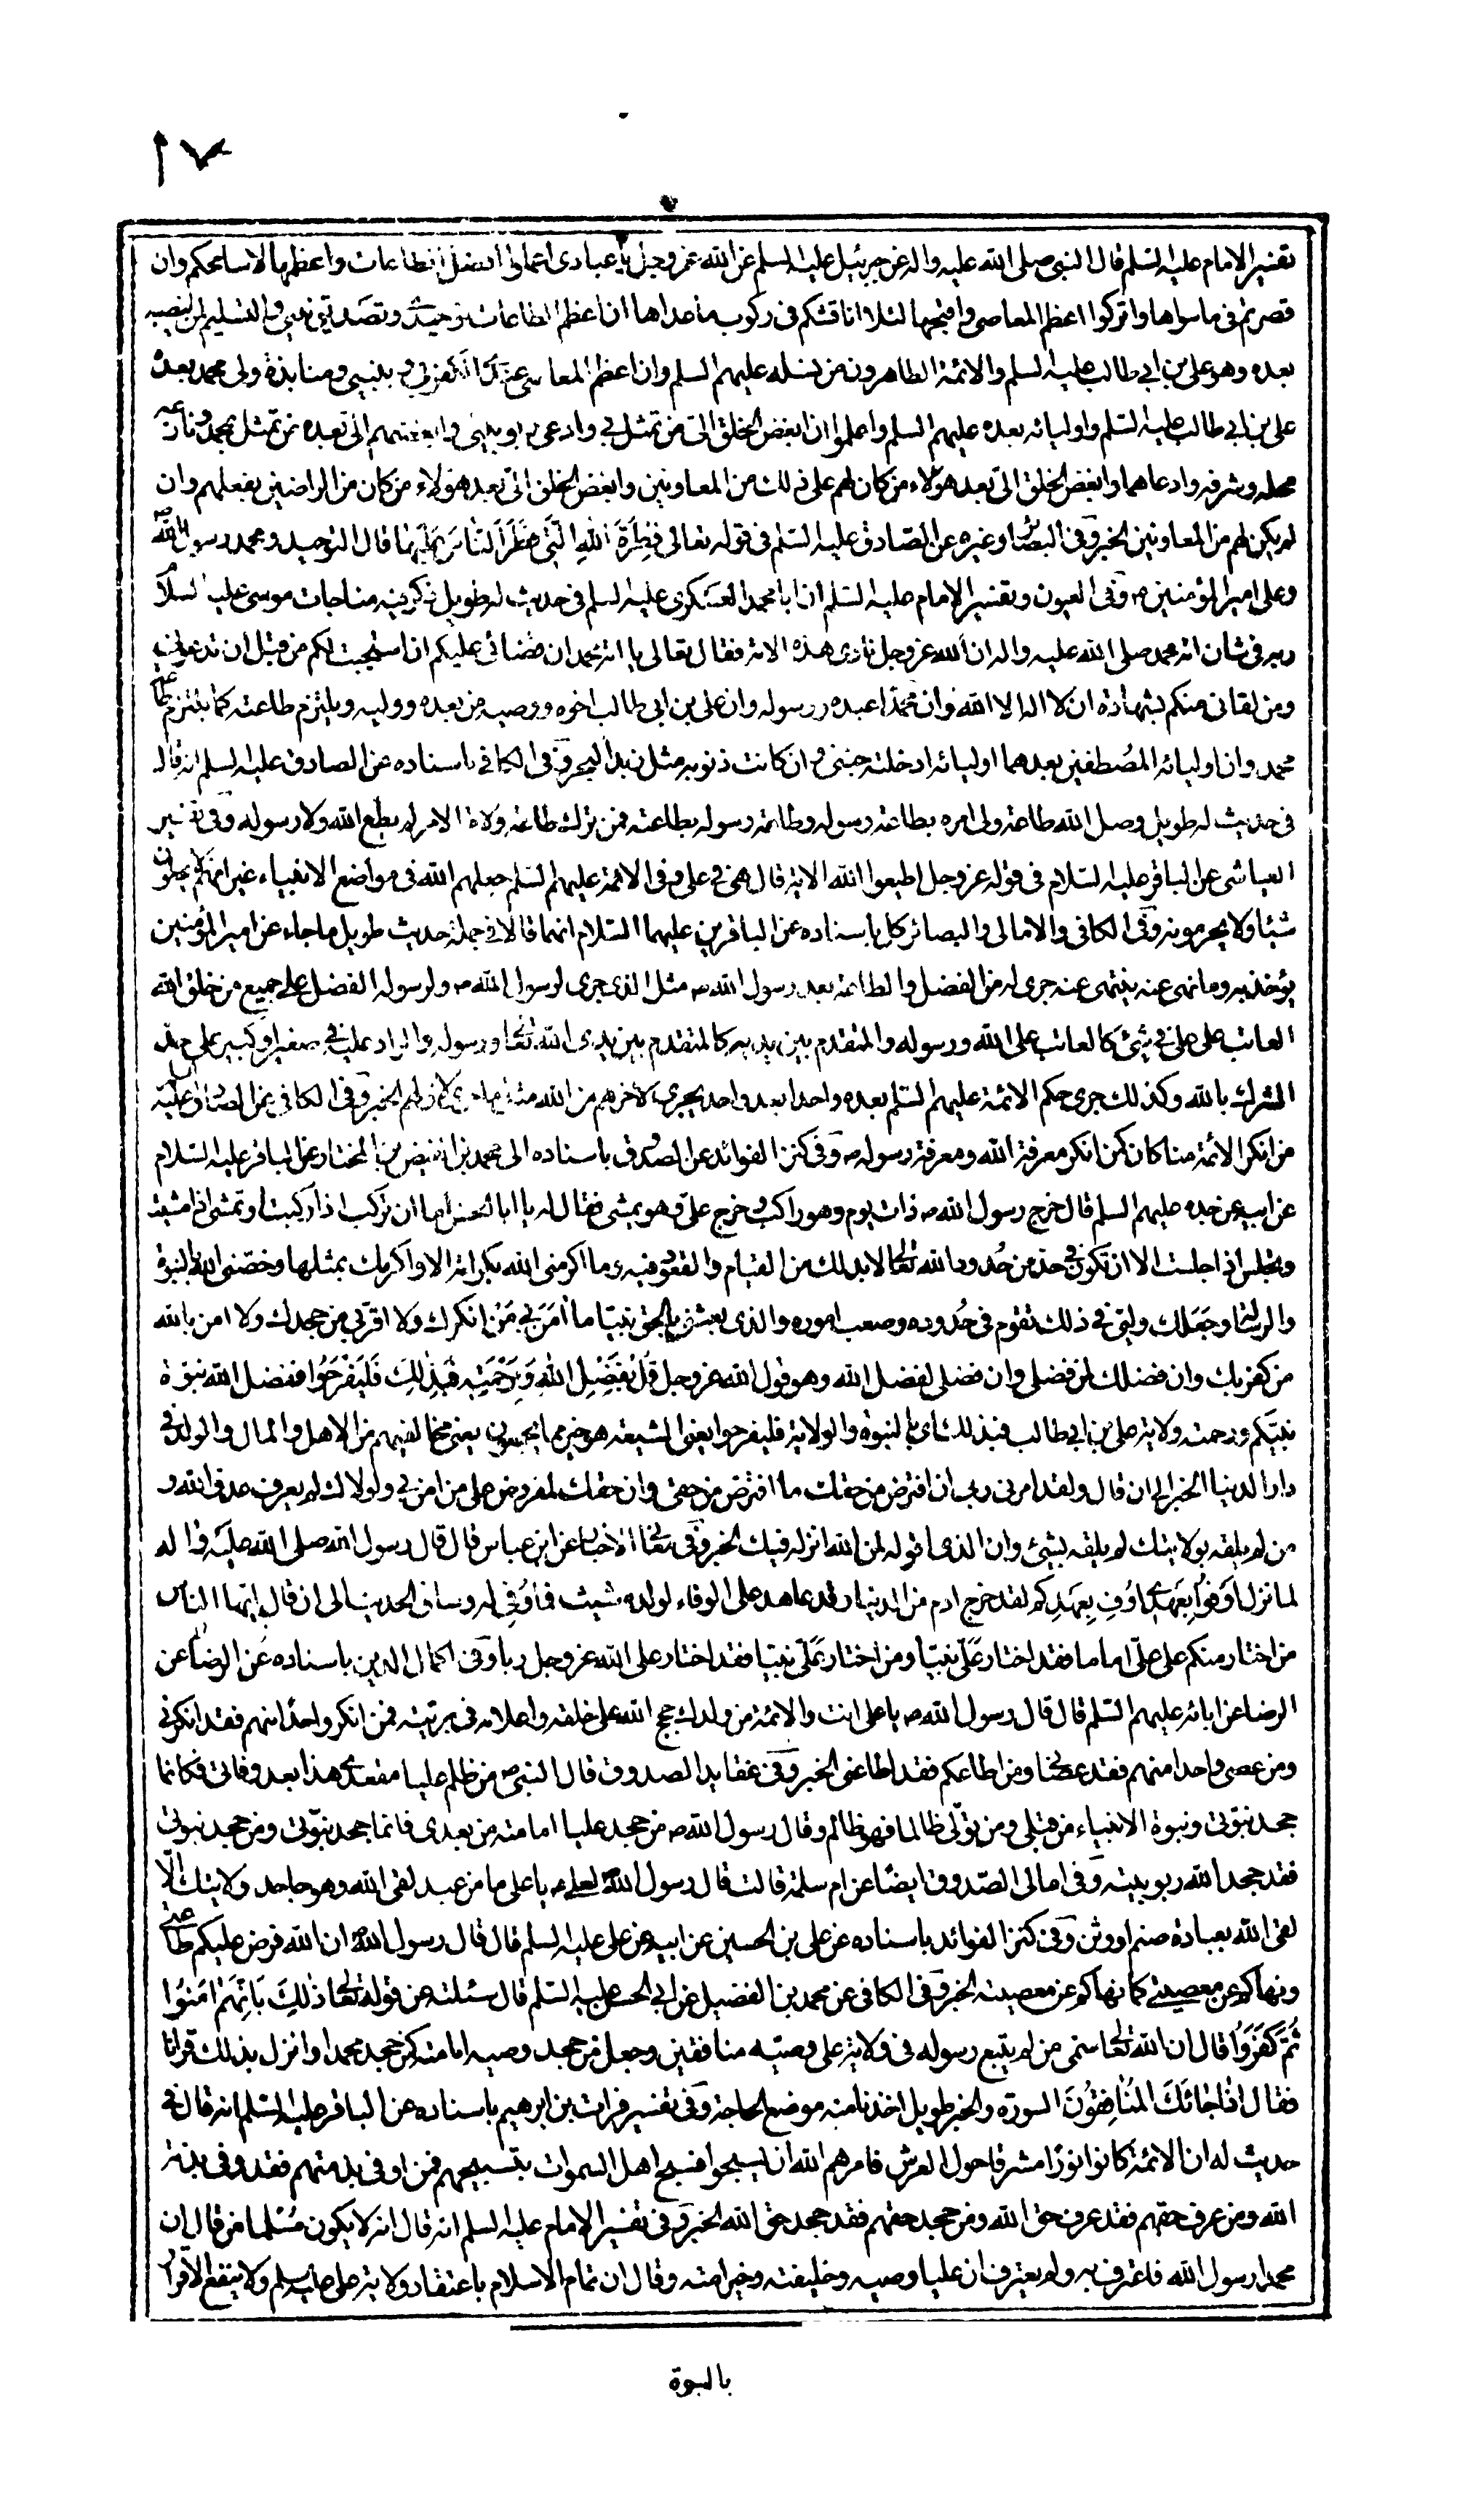 ١٧
تفسير الامام عليه السلم قال النبى صلى الله عليه واله عن جبرئيل عليه السلم عن الله عز وجل يا عبادى اعملوا افضل الطاعات واعظمها لاسامحكم وان
قصرتم فى ما سواها واتركوا اعظم المعاصى واقبحها لئلا اناقشكم فى ركوب ما عداها ان اعظم الطاعات توحيدى وتصديق نبيى والتسليم لمن نصبه
بعده وهو على بن ابى طالب عليه السلم والائمة الطاهرون من نسله عليهم السلم وان اعظم المعاصى عندى الكفر بى وبنبيى ومنابذة ولى محمد بعده
على بن ابى طالب عليه السلم واوليائه بعده عليهم السلم واعلموا ان ابغض الخلق الى من تمثل بى وادعى ربوبيتى وابغضهم الى بعده من تمثل بمحمد ونازعه
محله وشرفه وادعاهما وابغض الخلق الى بعد هؤلاء من كان لهم على ذلك من المعاونين وابغض الخلق الى بعد هؤلاء من كان من الراضين بفعلهم وان
لم يكن لهم من المعاونين الخبر وفى البصائر وغيره عن الصادق عليه السلم فى قوله تعالى فِطْرَةَ اللهِ الَّتِى فَطَرَ النّاسَ عَلَيْها قال التوحيد ومحمد رسول الله
وعلى امير المؤمنين وفى العيون وتفسير الامام عليه السلم ان ابا محمد العسكرى عليه السلم فى حديث له طويل ذكر فيه مناجات موسى عليه السلام
ربه فى شان امة محمد صلى الله عليه واله ان الله عز وجل نادى هذه الامة فقال تعالى يا امة محمد ان قضائى عليكم ان استجبت لكم من قبل ان تدعونى
ومن لقانى منكم بشهادة ان لا اله الا الله وان محمدا عبده ورسوله وان على بن ابى طالب اخوه ووصيه من بعده ووليه ويلتزم طاعته كما يلتزم طاعة
محمد وان اوليائه المصطفين بعدهما اوليائه ادخلته جنتى وان كانت ذنوبه مثل زبد البحر وفى الكافى باسناده عن الصادق عليه السلم انه قال
فى حديث له طويل وصل الله طاعة ولى امره بطاعة رسوله وطاعة رسوله بطاعته فمن ترك طاعة ولاة الامر لم يطع الله ولا رسوله وفى تفسير
العياشى عن الباقر عليه السلام فى قوله عز وجل اطيعوا الله الاية قال هى فى على وفى الائمة عليهم السلم جعلهم الله فى مواضع الانبياء غير انهم لا يحلون
شيئا ولا يحرمونه وفى الكافى والامالى والبصائر كل باسناده عن الباقرين عليهما السلام انهما قالا فى جملة حديث طويل ما جاء عن امير المؤمنين
يؤخذ به وما نهى عنه ينتهى عنه جرى له من الفضل والطاعة بعد رسول الله ص مثل الذى جرى لرسول الله ص ولرسوله الفضل على جميع من خلق الله
العائب على على فى شئ كالعائب على الله ورسوله والمتقدم بين يديه كالمتقدم بين يدى الله تعالى ورسوله والراد عليه فى صغير او كبير على حد
الشرك بالله وكذلك جرى حكم الائمة عليهم السلم بعده واحدا بعد واحد يجرى لآخرهم من الله مثل ما جرى لاولهم الخبر وفى الكافى عن الصادق عليه
من انكر الائمة منا كان كمن انكر معرفة الله ومعرفة رسوله ص وفى كنز الفوائد عن الصدوق باسناده الى محمد بن الفيض بن المختار عن الباقر عليه السلام
عن ابيه عن جده عليهم السلم قال خرج رسول الله ص ذات يوم وهو راكب وخرج على وهو يمشى فقال له يا ابا الحسن اما ان تركب اذا ركبت وتمشى اذا مشيت
وتجلس اذا جلست الا ان تكون فى حد من حدود الله تعالى لابد لك من القيام والقعود فيه وما اكرمنى الله بكرامة الا واكرمك بمثلها وخصنى الله بالنبوة
والرسالة وجعلك وليى فى ذلك تقوم فى حدوده وصعب اموره والذى بعثنى بالحق نبيا ما آمن بى من انكرك ولا اقر بى من جحدك ولا امن بالله
من كفر بك وان فضلك لمن فضلى وان فضلى لفضل الله وهو قول الله عز وجل قُلْ بِفَضْلِ اللهِ وَبِرَحْمَتِهِ فَبِذلِكَ فَلْيَفْرَحُوا ففضل الله نبوة
نبيكم ورحمته ولاية على بن ابى طالب فبذلك اى بالنبوة والولاية فليفرحوا يعنى الشيعة هو خير مما يجمعون يعنى مخالفيهم من الاهل والمال والولد فى
دار الدنيا الخبر الى ان قال ولقد امرنى ربى ان افترض من حقك ما افترض من حقى وان حقك لمفروض على من امن بى ولولاك لم يعرف عدو الله و
من لم يلقه بولايتك لم يلقه بشئ وان الذى اقوله لمن الله انزله فيك الخبر وفى معانى الاخبار عن ابن عباس قال قال رسول الله صلى الله عليه واله
لما نزل اَوْفُوا بِعَهْدِى اُوفِ بِعَهْدِكُمْ لقد خرج ادم من الدنيا وقد عاهد على الوفاء لولده شيث فما وفى له وساق الحديث الى ان قال ايها الناس
من اختار منكم على على اماما فقد اختار على نبيا ومن اختار على نبيا فقد اختار على الله عز وجل ربا وفى اكمال الدين باسناده عن الرضا عن
الرضا عن ابائه عليهم السلم قال قال رسول الله ص يا على انت والائمة من ولدك حجج الله على خلقه واعلامه فى بريته فمن انكر واحدا منهم فقد انكرنى
ومن عصى واحدا منهم فقد عصانى ومن اطاعكم فقد اطاعنى الخبر وفى عقايد الصدوق قال النبى ص من ظلم عليا مقعدى هذا بعد وفاتى فكانما
جحد نبوتى ونبوة الانبياء من قبلى ومن تولى ظالما فهو ظالم وقال رسول الله ص من جحد عليا امامته من بعدى فانما جحد نبوتى ومن جحد نبوتى
فقد جحد الله ربوبيته وفى امالى الصدوق ايضا عن ام سلمة قالت قال رسول الله لعلى يا على ما من عبد لقى الله وهو جاحد ولايتك الا
لقى الله بعبادة صنم او وثن وفى كنز الفوائد باسناده عن على بن الحسين عن ابيه عن على عليه السلم قال قال رسول الله ان الله فرض عليكم طاعتى
ونهاكم عن معصيتى كما نهاكم عن معصيته الخبر وفى الكافى عن محمد بن الفضيل عن ابى الحسن عليه السلم قال سئلته عن قوله تعالى ذلِكَ بِاَنَّهُمْ امَنُوا
ثُمَّ كَفَرُوا قال ان الله تعالى سمى من لم يتبع رسوله فى ولاية على وصيه منافقين وجعل من جحد وصيه امامته كمن جحد محمدا وانزل بذلك قرانا
فقال اِذا جائَكَ الْمُنافِقُونَ السورة والخبر طويل اخذنا منه موضع الحاجة وفى تفسير فرات بن ابرهيم باسناده عن الباقر عليه السلم انه قال فى
حديث له ان الائمة كانوا نورا مشرقا حول العرش فامرهم الله ان يسبحوا فسبح اهل السموات بتسبيحهم فمن اوفى بذمتهم فقد وفى بذمة
الله ومن عرف حقهم فقد عرف حق الله ومن جحد حقهم فقد جحد حق الله الخبر وفى تفسير الامام عليه السلم انه قال انه لا يكون مسلما من قال ان
محمدا رسول الله فاعترف به ولم يعترف ان عليا وصيه وخليفته وخير امته وقال ان تمام الاسلام باعتقاد ولاية على عليه السلم ولا ينفع الاقرار
بالنبوة